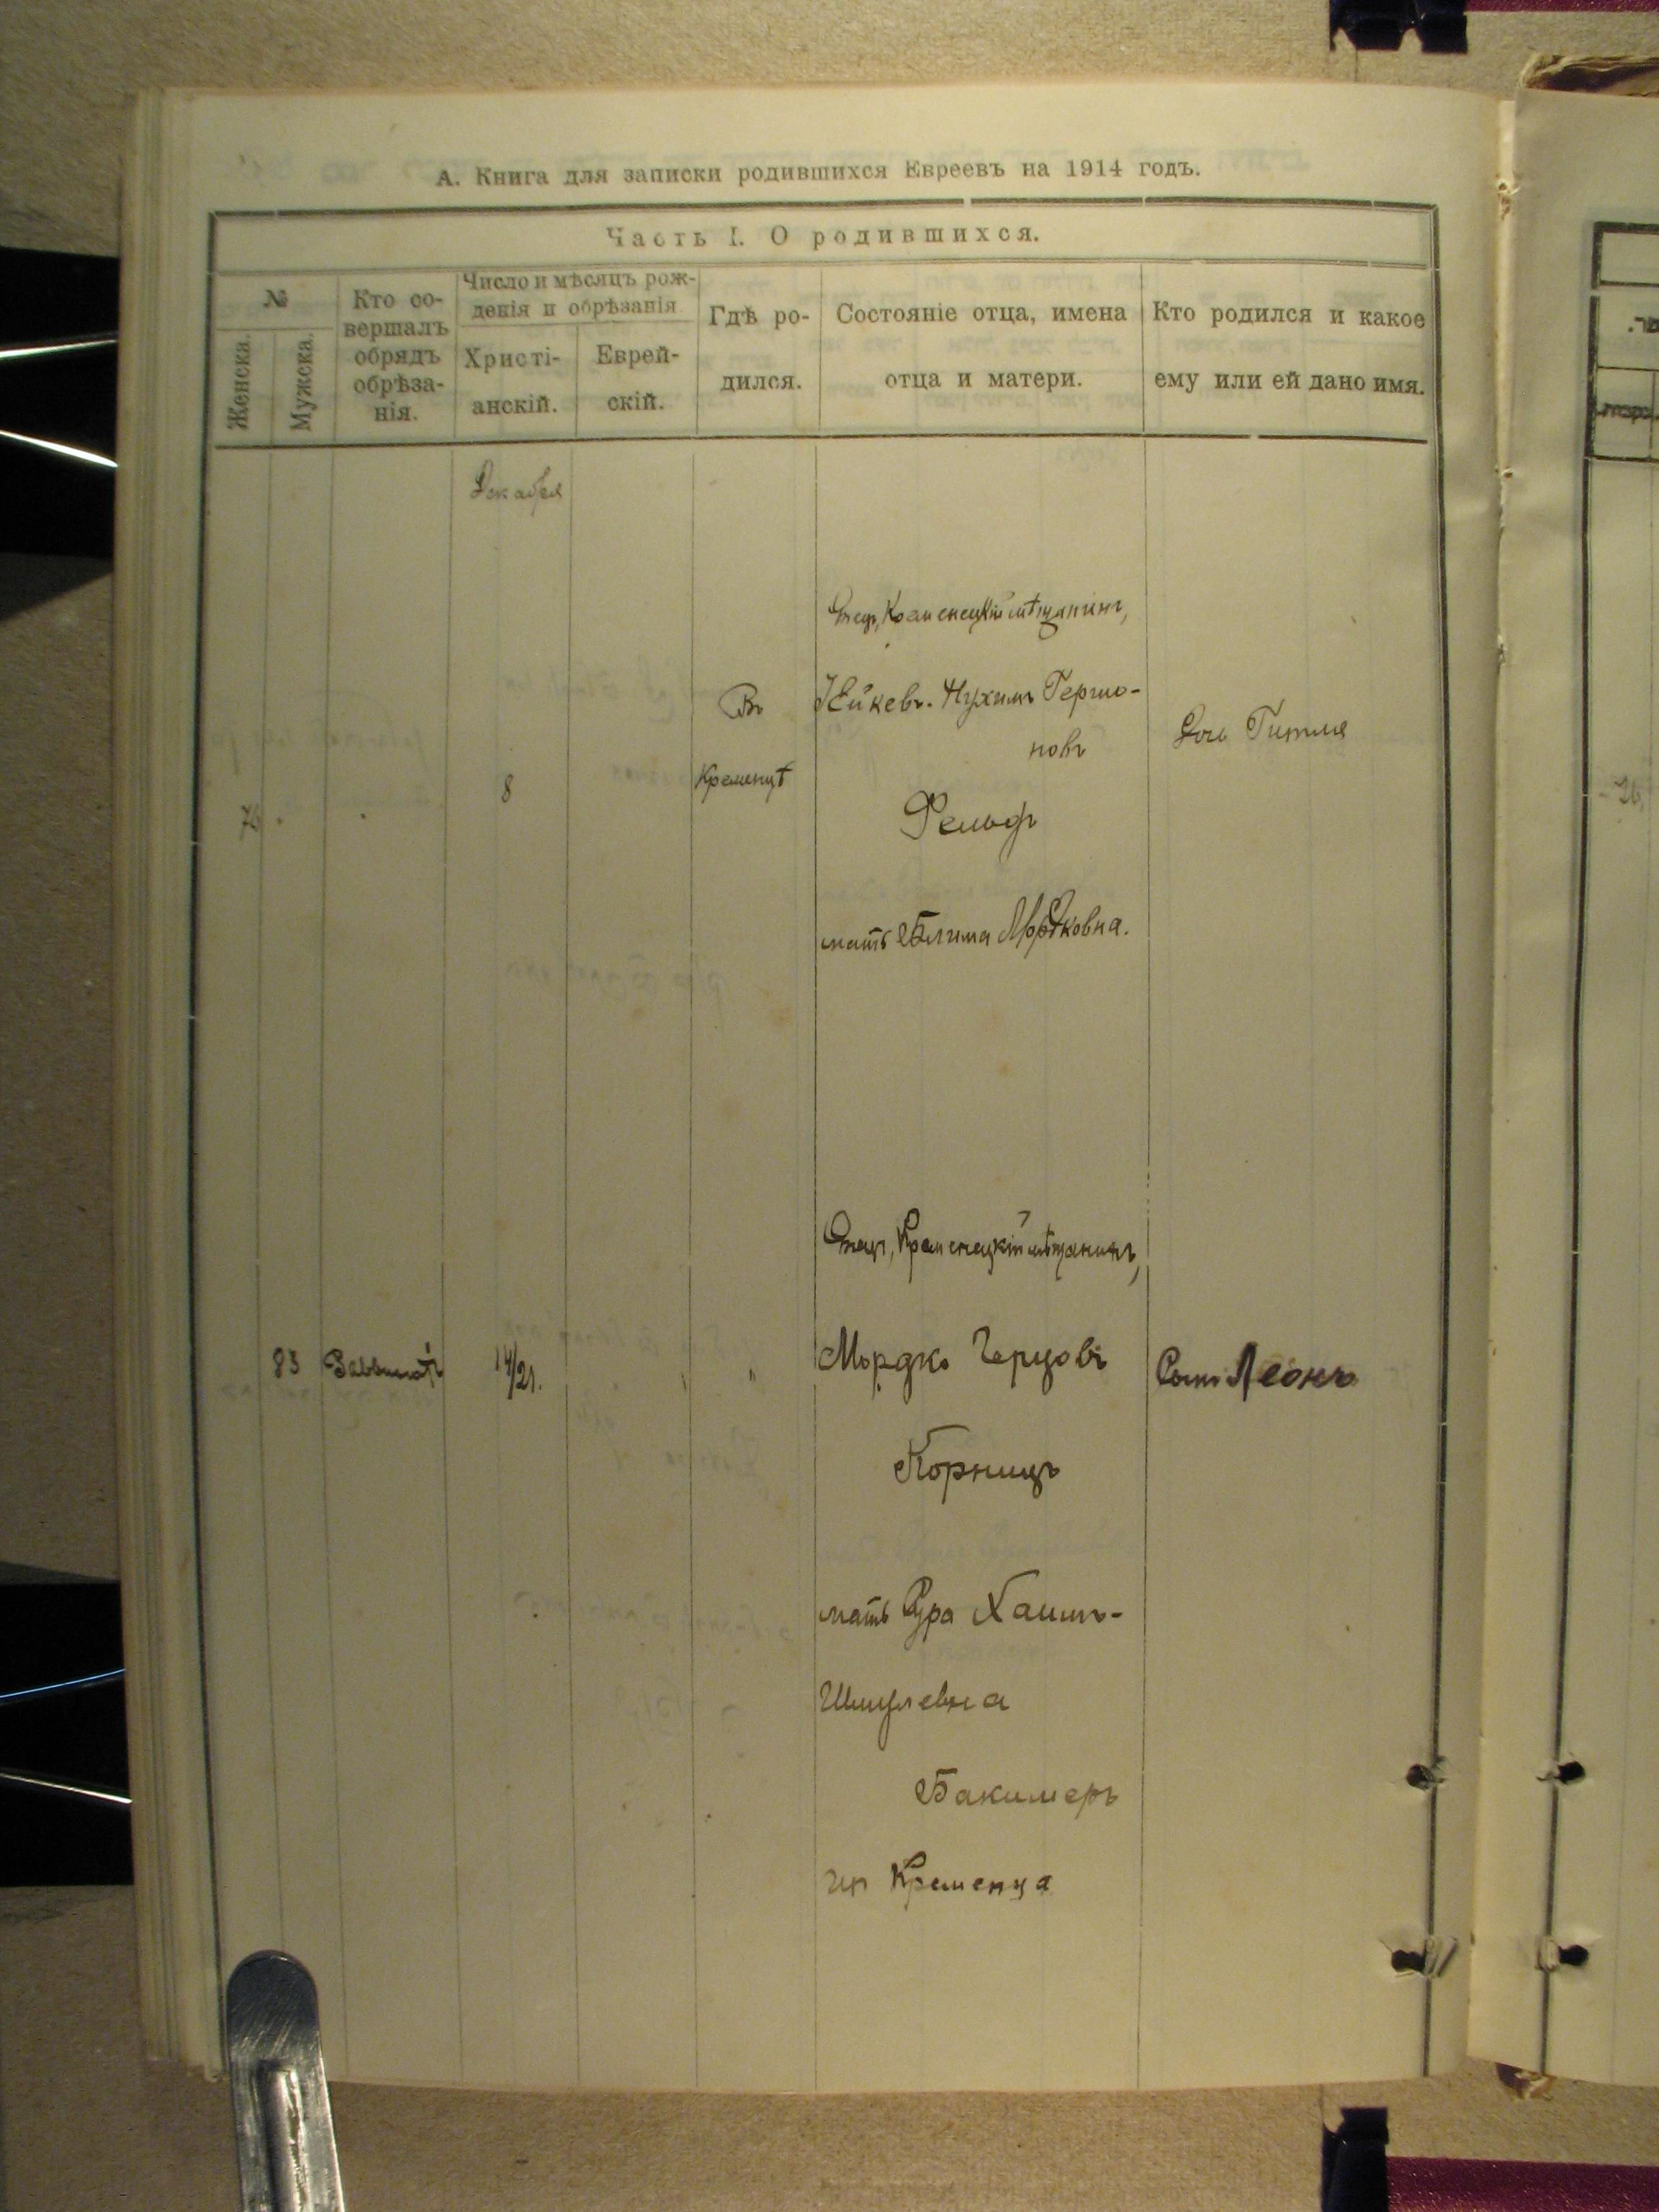 А. Книга для записки родившихся Евреевъ на 1914 годъ.
Часть I. О родившихся.
№
Женска.
Мужска.
Кто со-
вершалъ
обрядъ
обрѣза-
нія.
Число и мѣсяцъ рож-
денія и обрѣзанія
Христі-
анскій.
Еврей-
скій.
Гдѣ ро-
дился.
Состояніе отца, имена
отца и матери.
Кто родился и какое
ему или ей дано имя.
Декабря
76
8
Въ
Кременцѣ
Отецъ, Кременецкій мѣщанинъ,
Нухимъ Гершо-
новъ
Фельдъ
мать Блима Мордковна.
Дочь Гитля
83
14/21.
"
Отецъ, Кременецкій мѣщанинъ,
Мордко Герцовъ
Корницъ
мать Сура Хаимъ-
Шмулевна
Бакимеръ
изъ Кременца
Сынъ Леонъ